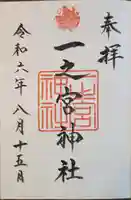 奉拝
一之宮神社
令和六年八月十五日